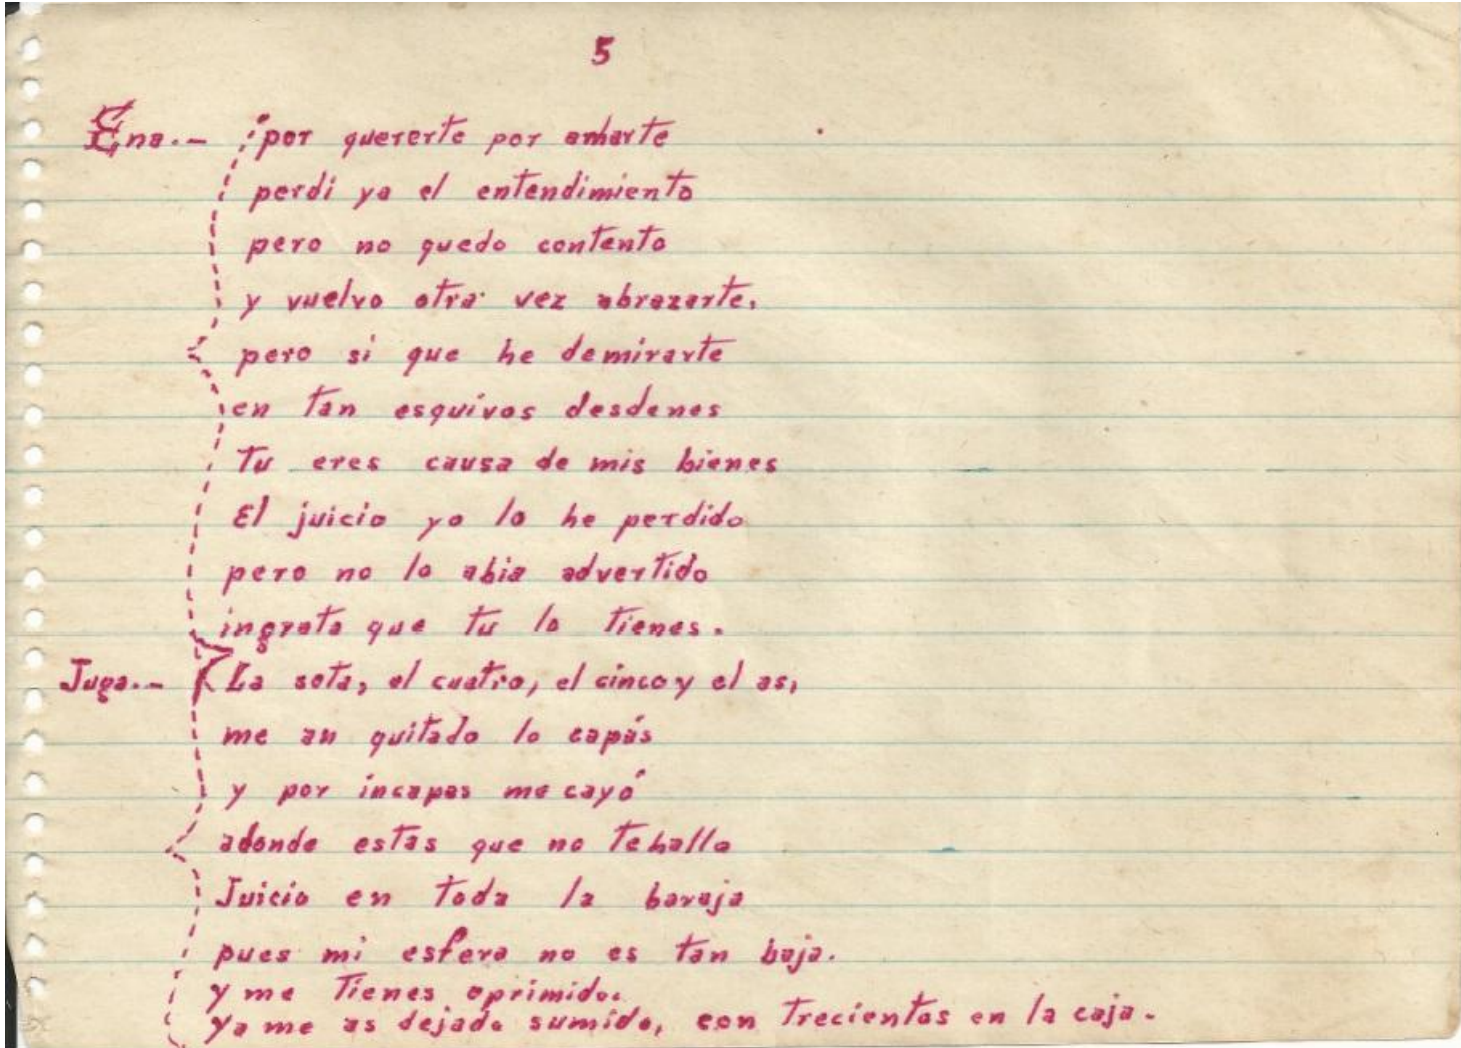 5
Ena.- por quererte por amarte
perdi yo el entendimiento
pero no quedo contento
y vuelvo otra vez abrazarte,
pero si que he demirarte
en tan esquivos desdenes
Tu eres causa de mis bienes
El juicio yo lo he perdido
pero no lo abia advertido
ingrata que tu lo tienes.
Juga.- La sota, el cuatro, el cinco y el as,
me an quitado lo capás
y por incapas me cayó
adonde estas que no tehallo
Juicio en toda la baraja
pues mi esfera no es tan baja.
y me tienes oprimido.
ya me as dejado sumido, con trecientos en la caja.